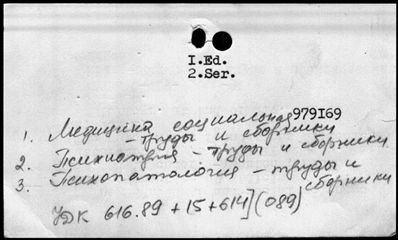 I.Ed.
2.Ser.
979I69
1. Медицина социальная
- труды и сборники
2. Психиатрия - труды и сборники
3. Психопатология - труды и
сборники
УДК 616.89 + 15 + 614](089)